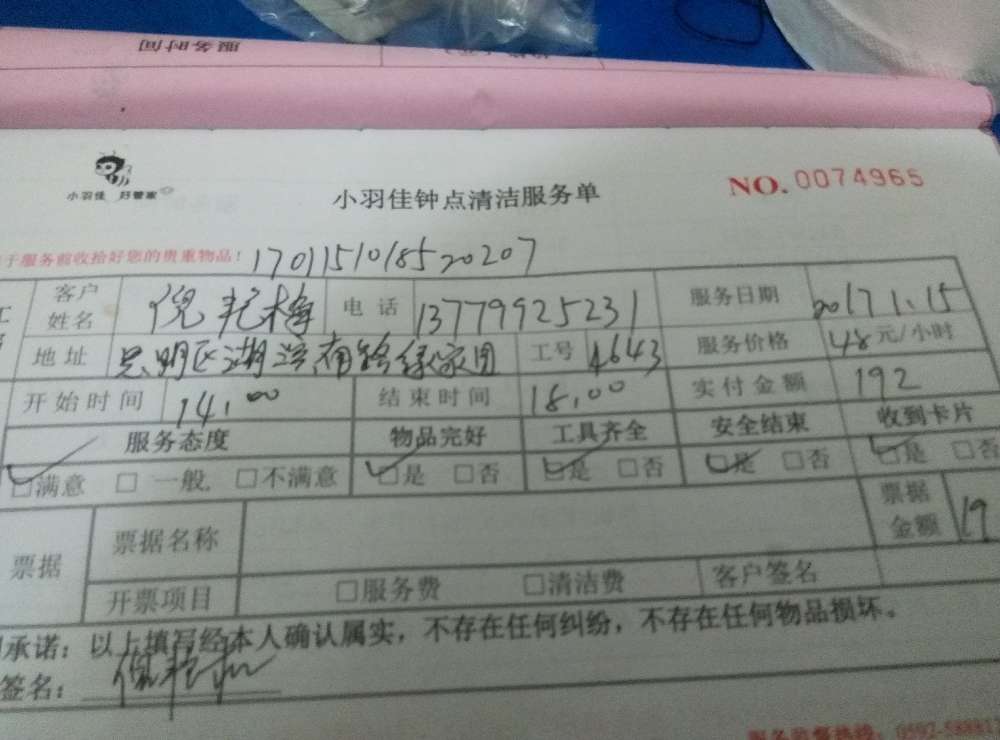 服务时间
小羽佳 好管家
小羽佳钟点清洁服务单
NO. 0074965
于服务前收拾好您的贵重物品! 1701151018520207
客户姓名 倪艳梅 电话 13779925231 服务日期 2017 1.15
地址 思明区湖滨南路绿家园 工号 4643 服务价格 48 元/小时
开始时间 14.00 结束时间 18.00 实付金额 192
服务态度 物品完好 工具齐全 安全结束 收到卡片
□满意 □一般 □不满意 □是 □否 □是 □否 □是 □否 □是 □否
票据 票据名称 票据金额 19
开票项目 □服务费 □清洁费 客户签名
承诺：以上填写经本人确认属实，不存在任何纠纷，不存在任何物品损坏。
签名：倪艳梅
服务监督热线：0592-5888